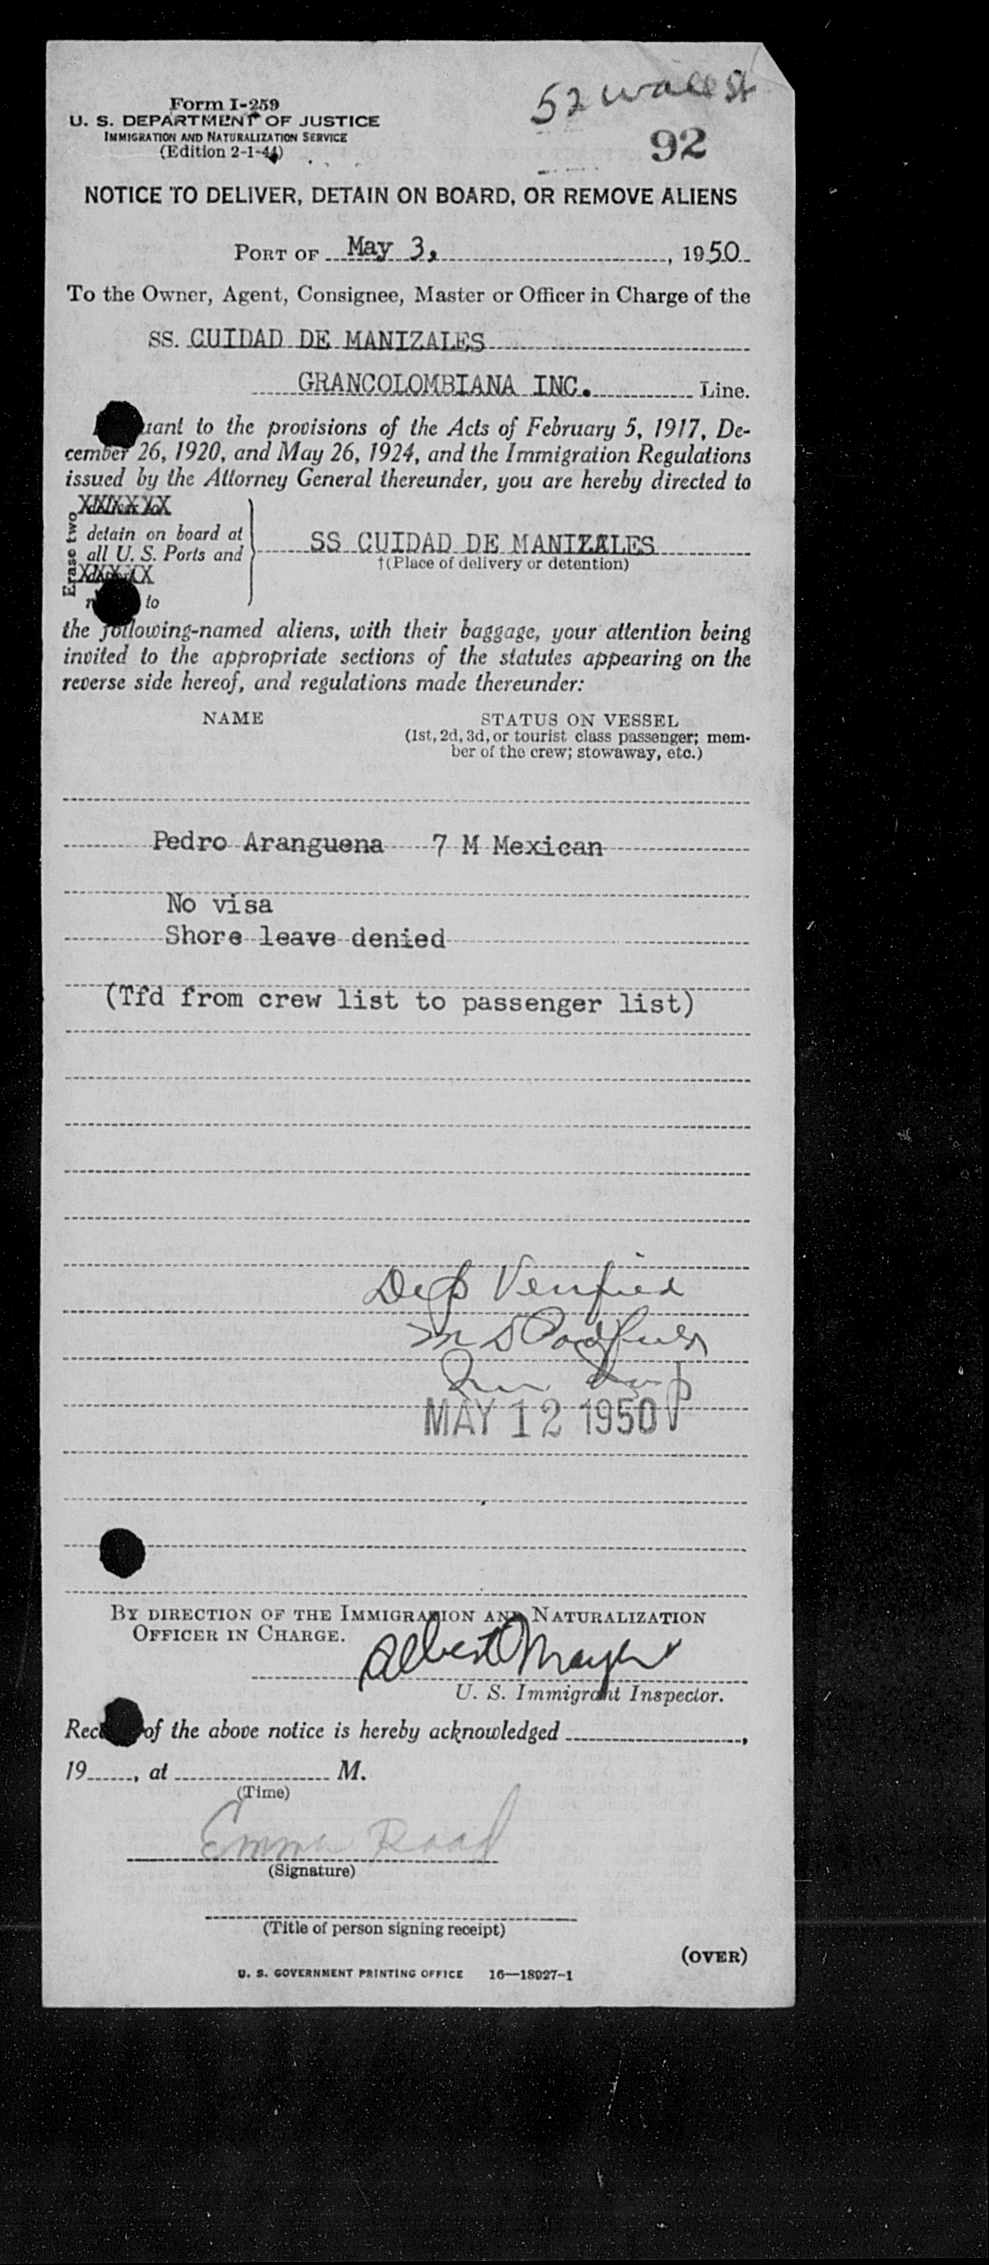 52 Wall St
Form I-259
U. S. DEPARTMENT OF JUSTICE
IMMIGRATION AND NATURALIZATION SERVICE
(Edition 2-1-44)
92
NOTICE TO DELIVER, DETAIN ON BOARD, OR REMOVE ALIENS
PORT OF May 3, , 1950
To the Owner, Agent, Consignee, Master or Officer in Charge of the
SS. CUIDAD DE MANIZALES
GRANCOLOMBIANA INC. Line.
uant to the provisions of the Acts of February 5, 1917, De-
cember 26, 1920, and May 26, 1924, and the Immigration Regulations
issued by the Attorney General thereunder, you are hereby directed to
Erase two
XXXXXX
detain on board at
all U. S. Ports and
XXXXXX
to
SS CUIDAD DE MANIZALES
†(Place of delivery or detention)
the following-named aliens, with their baggage, your attention being
invited to the appropriate sections of the statutes appearing on the
reverse side hereof, and regulations made thereunder:
NAME STATUS ON VESSEL
(1st, 2d, 3d, or tourist class passenger; mem-
ber of the crew; stowaway, etc.)
Pedro Aranguena 7 M Mexican
No visa
Shore leave denied
(Tfd from crew list to passenger list)
Dep Verified
MAY 12 1950
BY DIRECTION OF THE IMMIGRATION AND NATURALIZATION
OFFICER IN CHARGE.
Albert Mayer
U. S. Immigrant Inspector.
Rec of the above notice is hereby acknowledged ,
19 , at M.
(Time)
Emma Road
(Signature)
(Title of person signing receipt)
(OVER)
U. S. GOVERNMENT PRINTING OFFICE 16—18927-1